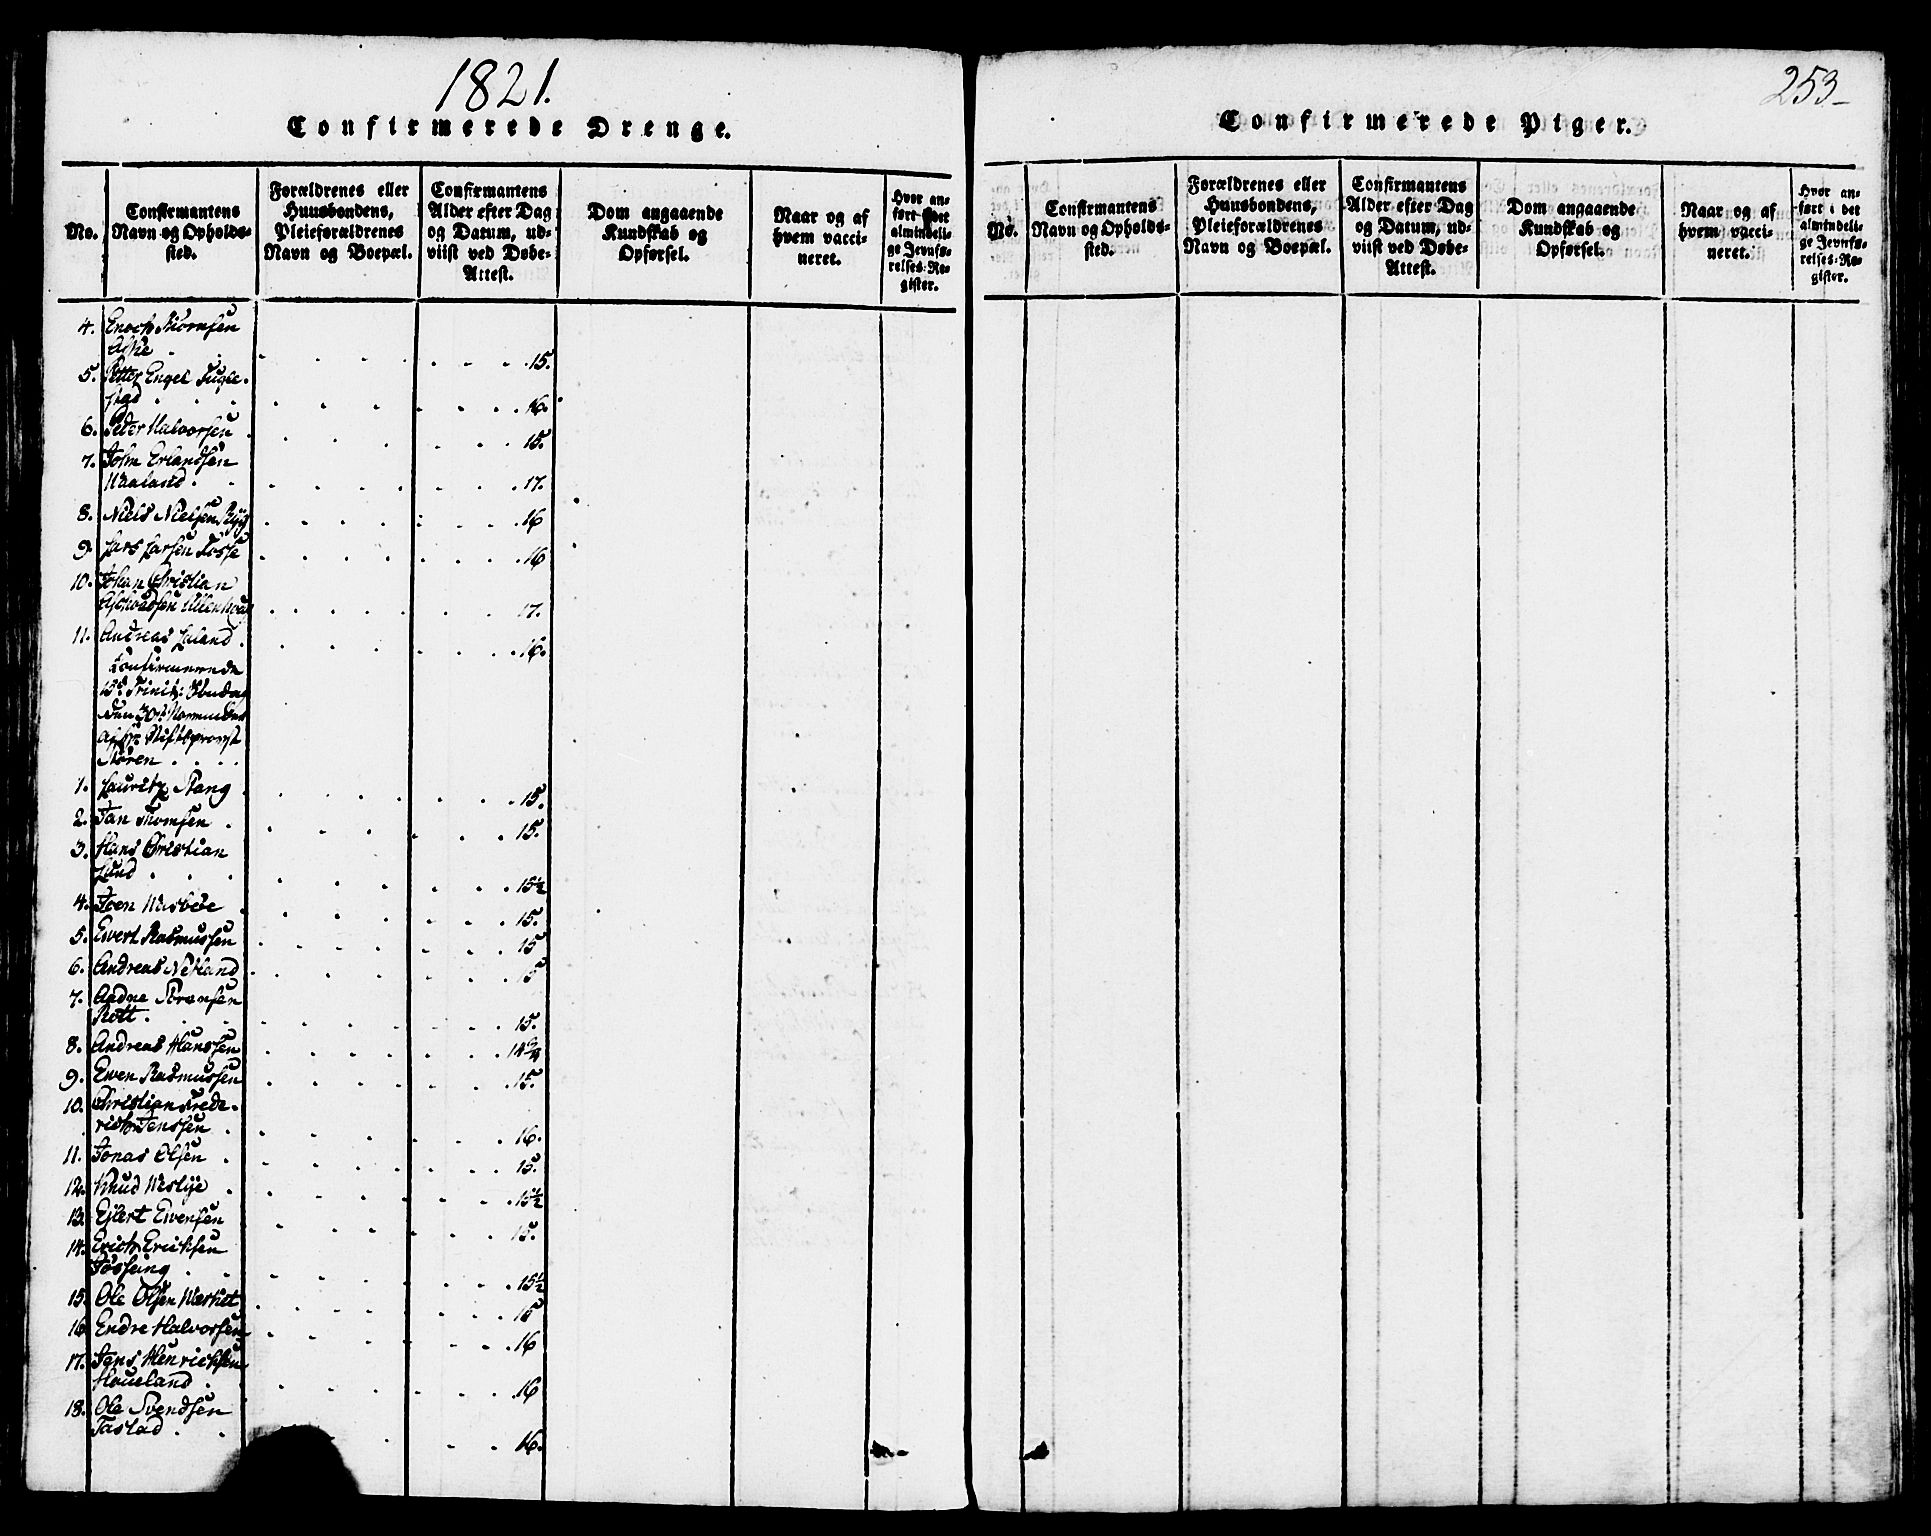 1821.
Confirmerede Drenge.
No.
Confirmantens
Navn og Opholds-
sted.
Forældrenes eller
Huusbondens,
Pleieforældrenes
Navn og Boepæl.
Confirmantens
Alder efter Dag
og Datum, ud-
viist ved Døbe-
Attest.
Dom angaaende
Kundskab og
Opførsel.
Naar og af
hvem vacci-
neret.
Hvor an-
ført i det
almindeli-
ge Jevnfø-
relses-Re-
gister.
4. Enoch Thomsen
Aske . . . . . . . 15.
5. Petter Engel Fugle-
stad . . . . . . . 16.
6. Peder Halvorsen . . . . . 15.
7. John Erlandsen
Haaland . . . . . . . 17.
8. Niels Nielsen Ryg . . . . . 16
9. Lars Larsen Tosse . . . . . 16
10. Johan Christian
. . . . . 17.
11. Andreas Laland . . . . . 16.
Confirmerede
Trinit: Søndag
Stiftsprovst
Støren . . . .
1. Lauritz Stang . . . . . 15.
2. Jan Thomsen . . . . . 15.
3. Hans Christian
Lund . . . . . 15½
4. Joen Wasbøe . . . . . 15.
5. Ewert Rasmussen . . . . . 15
6. Andreas Netland . . . . . 15
7. Aadne Sørensen
Rott . . . . . 15.
8. Andreas Hanssen . . . . . 14¾
9. Ewen Rasmussen . . . . . 15.
10. Christian Frede-
rich Jenssen . . . . . 16.
11. Jonas Olsen . . . . . 15.
12. Knud Weslye . . . . . 15½
13. Ejlert Ewensen . . . . . 15.
14. Erich Ericksen
Jøssang . . . . . 15½
15. Ole Olsen . . . . . 15
16. Endre Halvorsen . . . . . 16
17. Jens Henricksen
Haueland . . . . . 16
18. Ole Svendsen
Tastad . . . . . 16.
253-
Confirmerede Piger.
No.
Confirmantens
Navn og Opholds-
sted.
Forældrenes eller
Huusbondens,
Pleieforældrenes
Navn og Boepæl.
Confirmantens
Alder efter Dag
og Datum, ud-
viist ved Døbe-
Attest.
Dom angaaende
Kundskab og
Opførsel.
Naar og af
hvem vacci-
neret.
Hvor an-
ført i det
almindeli-
ge Jevnfø-
relses-Re-
gister.